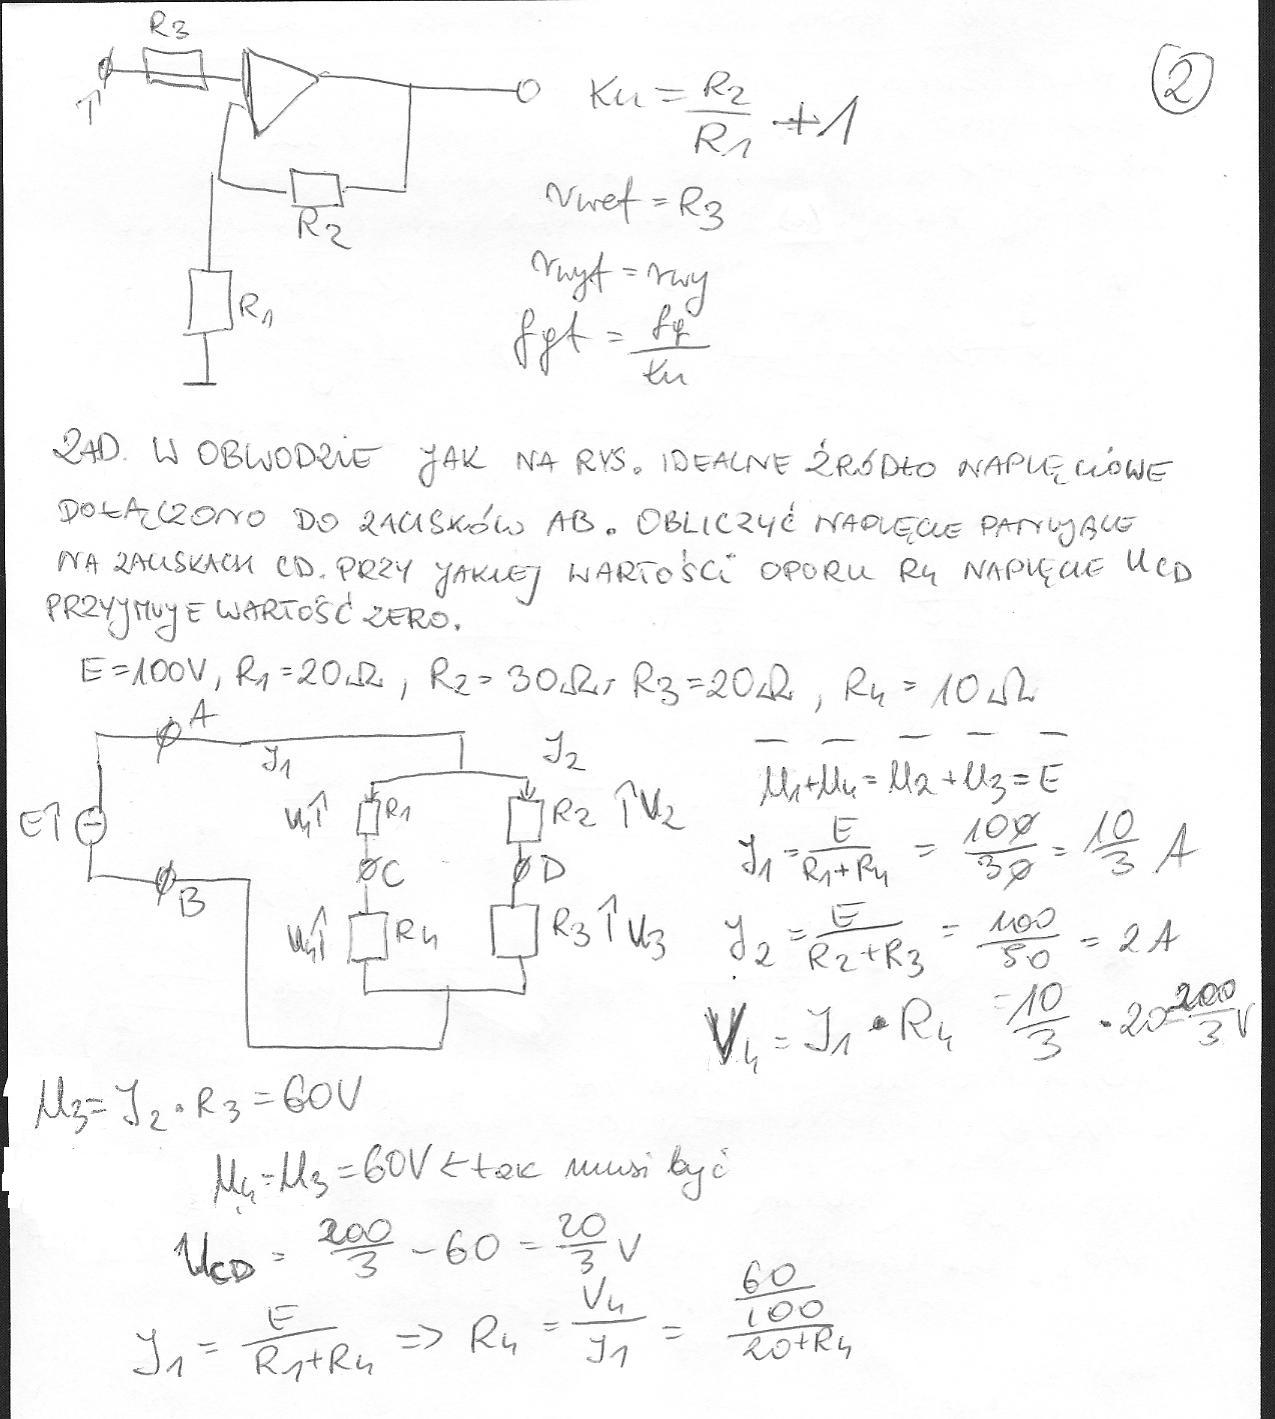 R3
2
Ku = R2/R1 + 1
rwef = R3
R2
rwyf = rwy
R1
fgf = fg/Ku
ZAD. W OBWODZIE JAK NA RYS. IDEALNE ŹRÓDŁO NAPIĘCIOWE
DOŁĄCZONO DO ZACISKÓW AB. OBLICZYĆ NAPIĘCIE PANUJĄCE
NA ZACISKACH CD. PRZY JAKIEJ WARTOŚCI OPORU R4 NAPIĘCIE UCD
PRZYJMUJE WARTOŚĆ ZERO.
E=100V, R1=20Ω, R2=30Ω, R3=20Ω, R4=10Ω
A
I1
I2
U1+U4=U2+U3=E
E
U1
R1
R2
U2
I1 = E/R1+R4 = 100/30 = 10/3 A
B
C
D
U4
R4
R3
U3
I2 = E/R2+R3 = 100/50 = 2A
U4 = I1 · R4 = 10/3 · 20 = 200/3 V
U3 = I2 · R3 = 60V
U4=U3=60V ← tak musi być
UCD = 200/3 - 60 = 20/3 V
I1 = E/R1+R4 => R4 = U4/I1 = 60/100/20+R4